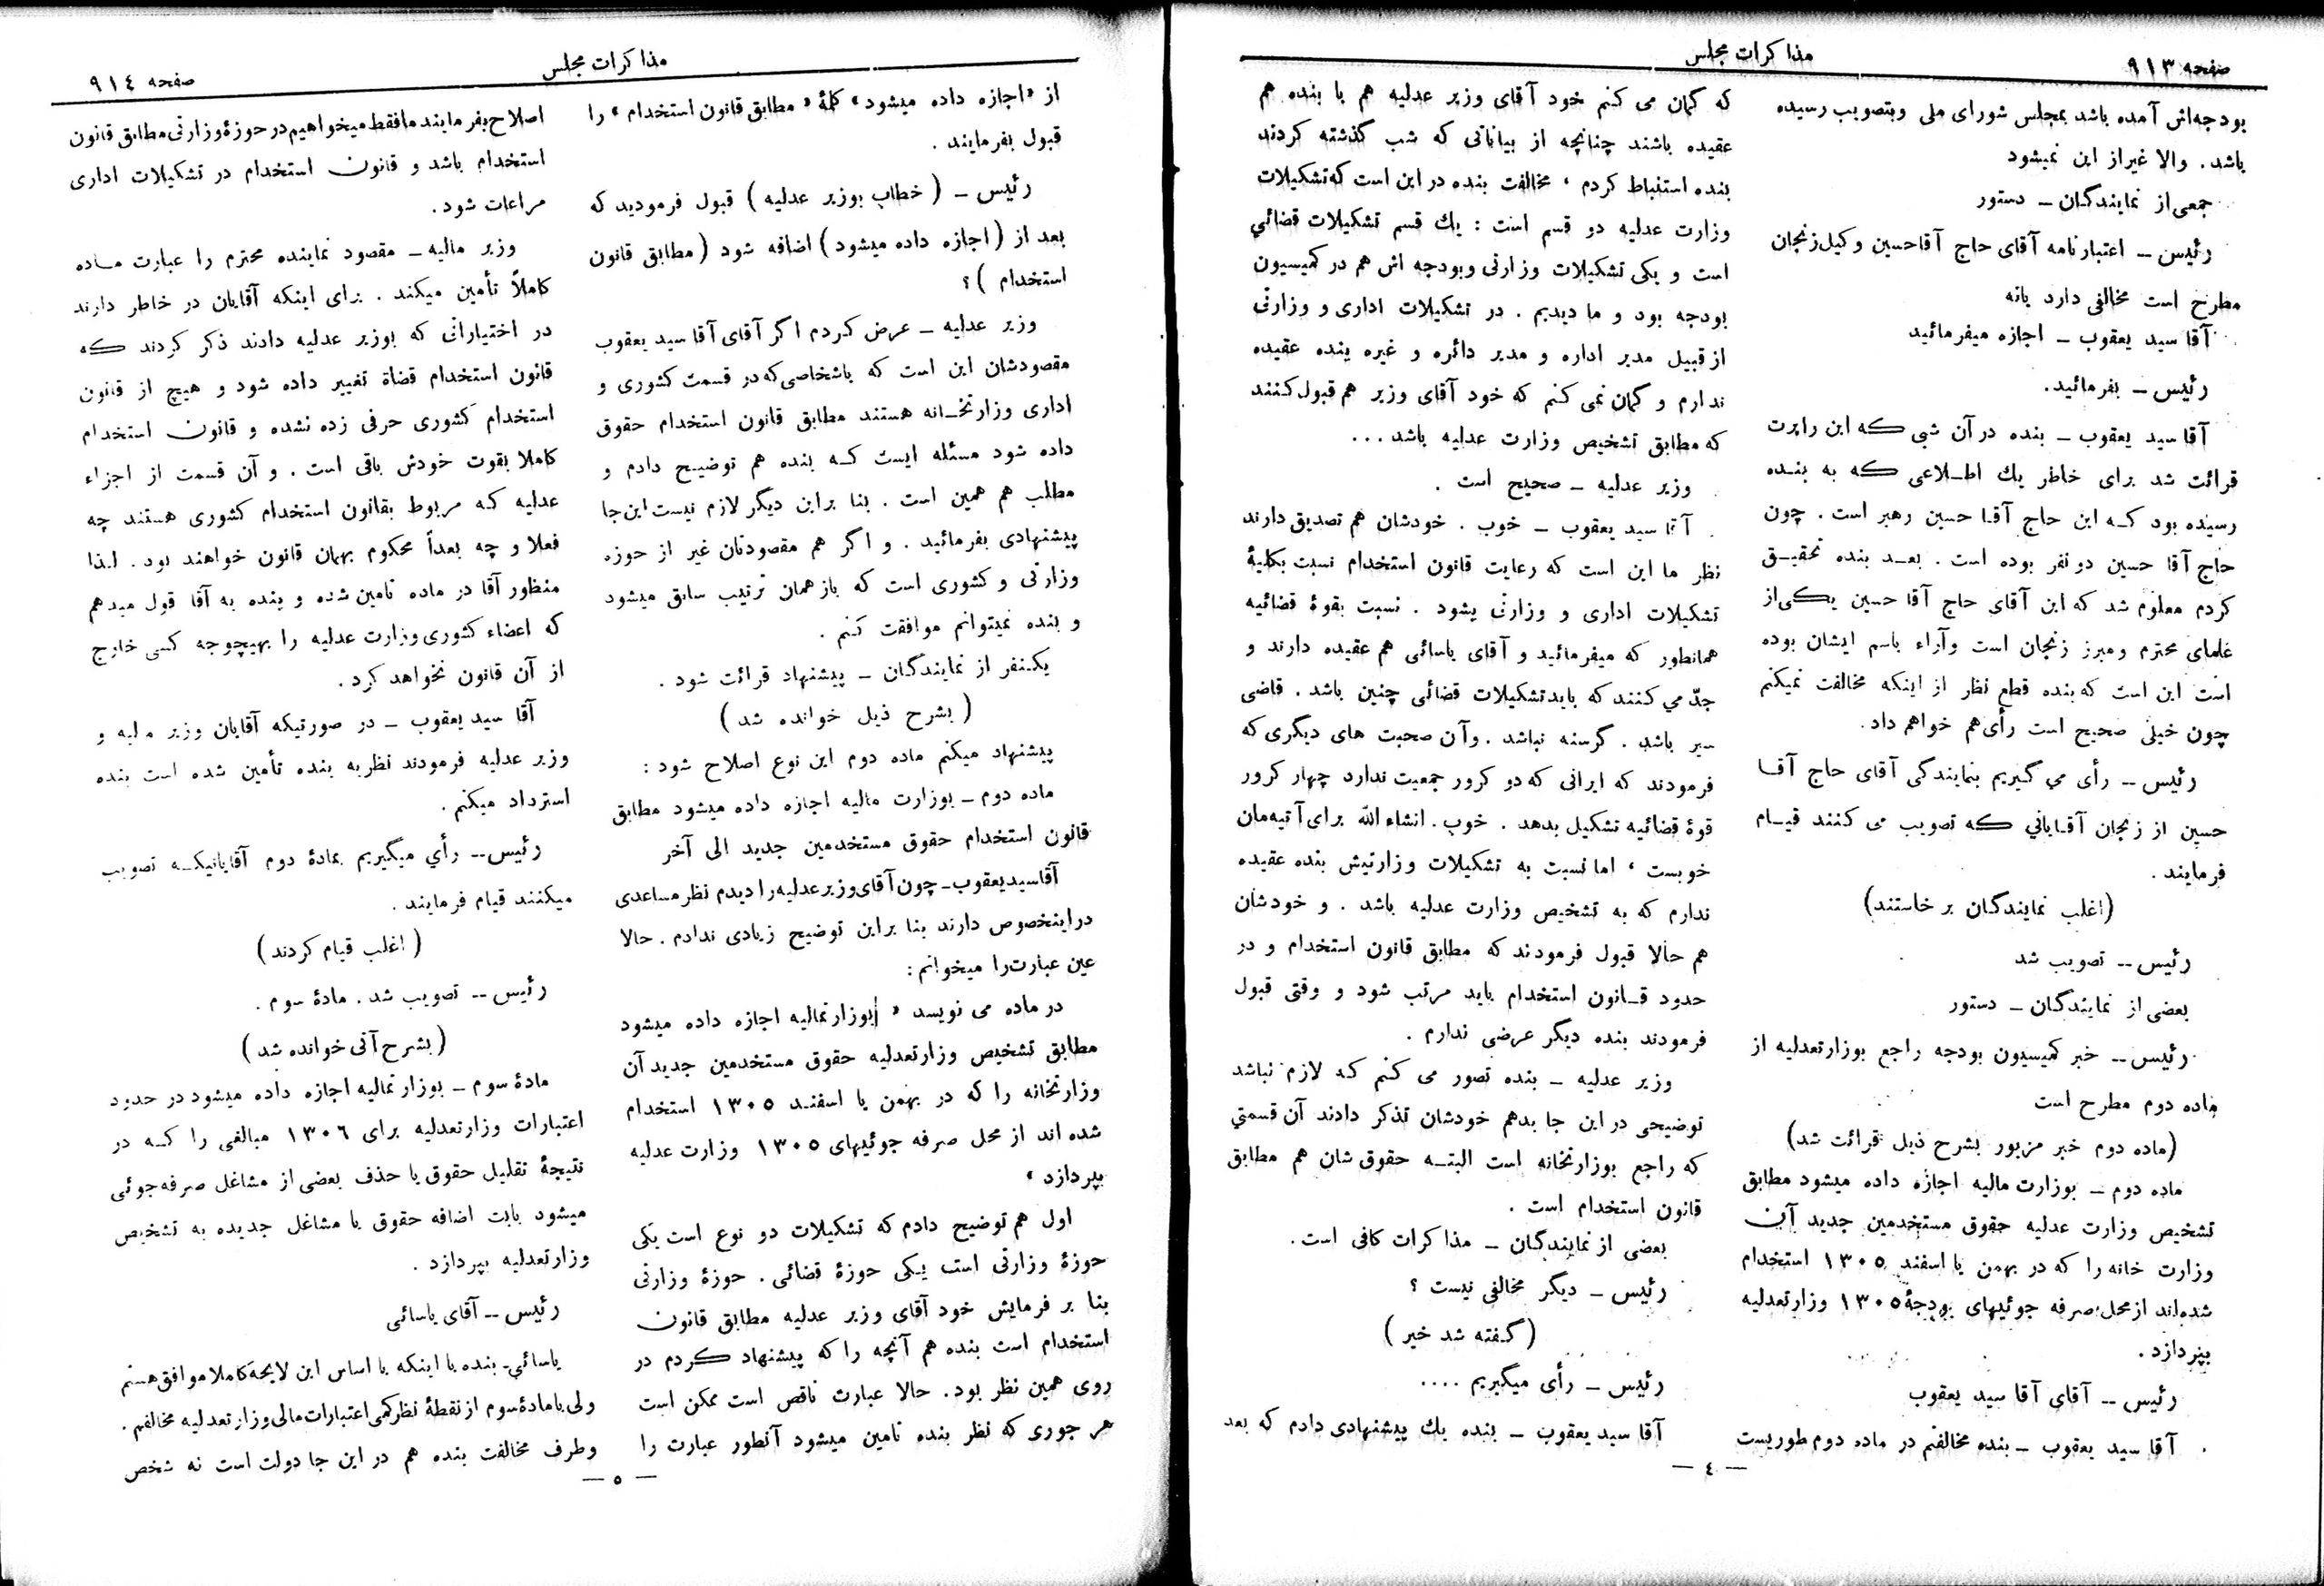 صفحه ۹۱۳
مذاکرات مجلس
بودجه‌اش آمده باشد بمجلس شورای ملی وبتصویب رسیده
باشد. والا غیراز این نمیشود
جمعی از نمایندگان ــ دستور
رئیس ــ اعتبارنامه آقای حاج آقاحسین وکیل زنجان
مطرح است مخالفی دارد یانه
آقا سید یعقوب ــ اجازه میفرمائید
رئیس ــ بفرمائید.
آقا سید یعقوب ــ بنده در آن شبی که این راپرت
قرائت شد برای خاطر یك اطلاعی که به بنده
رسیده بود که این حاج آقا حسین رهبر است . چون
حاج آقا حسین دو نفر بوده است . بعد بنده تحقیق
کردم معلوم شد که این آقای حاج آقا حسین یکی از
علمای محترم ومبرز زنجان است وآراء باسم ایشان بوده
است این است که بنده قطع نظر از اینکه مخالفت نمیکنم
چون خیلی صحیح است رأی هم خواهم داد.
رئیس ــ رأی می گیریم بنمایندگی آقای حاج آقا
حسین از زنجان آقایانی که تصویب می کنند قیام
فرمایند .
(اغلب نمایندگان بر خاستند)
رئیس ــ تصویب شد
بعضی از نمایندگان ــ دستور
رئیس ــ خبر کمیسیون بودجه راجع بوزارتعدلیه از
ماده دوم مطرح است
(ماده دوم خبر مزبور بشرح ذیل قرائت شد)
ماده دوم ــ بوزارت مالیه اجازه داده میشود مطابق
تشخیص وزارت عدلیه حقوق مستخدمین جدید آن
وزارت خانه را که در بهمن یا اسفند ۱۳۰۵ استخدام
شده‌اند از محل صرفه جوئیهای بودجهٔ ۱۳۰۵ وزارتعدلیه
بپردازد .
رئیس ــ آقای آقا سید یعقوب
آقا سید یعقوب ــ بنده مخالفم در ماده دوم طوریست
که گمان می کنم خود آقای وزیر عدلیه هم با بنده هم
عقیده باشند چنانچه از بیاناتی که شب گذشته کردند
بنده استنباط کردم ، مخالفت بنده در این است که تشکیلات
وزارت عدلیه دو قسم است : یك قسم تشکیلات قضائي
است و یکی تشکیلات وزارتی وبودجه اش هم در کمیسیون
بودجه بود و ما دیدیم . در تشکیلات اداری و وزارتی
از قبیل مدیر اداره و مدیر دائره و غیره بنده عقیده
ندارم و گمان نمی کنم که خود آقای وزیر هم قبول کنند
که مطابق تشخیص وزارت عدلیه باشد ...
وزیر عدلیه ــ صحیح است .
آقا سید یعقوب ــ خوب . خودشان هم تصدیق دارند
نظر ما این است که رعایت قانون استخدام نسبت بکلیهٔ
تشکیلات اداری و وزارتی بشود . نسبت بقوهٔ قضائیه
همانطور که میفرمائید و آقای یاسائی هم عقیده دارند و
جدّ می کنند که باید تشکیلات قضائی چنین باشد . قاضی
سیر باشد . گرسنه نباشد . وآن صحبت های دیگری که
فرمودند که ایرانی که دو کرور جمعیت ندارد چهار کرور
قوهٔ قضائیه تشکیل بدهد . خوب . انشاءالله برای آتیه‌مان
خوبست ، اما نسبت به تشکیلات وزارتیش بنده عقیده
ندارم که به تشخیص وزارت عدلیه باشد . و خودشان
هم حالا قبول فرمودند که مطابق قانون استخدام و در
حدود قانون استخدام باید مرتب شود و وقتی قبول
فرمودند بنده دیگر عرضی ندارم .
وزیر عدلیه ــ بنده تصور می کنم که لازم نباشد
توضیحی در این جا بدهم خودشان تذکر دادند آن قسمتي
که راجع بوزارتخانه است البته حقوق شان هم مطابق
قانون استخدام است .
بعضی از نمایندگان ــ مذاکرات کافی است .
رئیس ــ دیگر مخالفی نیست ؟
(گفته شد خیر)
رئیس ــ رأی میگیریم ....
آقا سید یعقوب ــ بنده یك پیشنهادی دادم که بعد
ــ ٤ ــ
مذاکرات مجلس
صفحه ۹۱٤
از «اجازه داده میشود» کلمهٔ «مطابق قانون استخدام» را
قبول بفرمایند .
رئیس ــ ( خطاب بوزیر عدلیه ) قبول فرمودید که
بعد از (اجازه داده میشود) اضافه شود (مطابق قانون
استخدام ) ؟
وزیر عدلیه ــ عرض کردم اگر آقای آقا سید یعقوب
مقصودشان این است که باشخاصی که در قسمت کشوری و
اداری وزارتخانه هستند مطابق قانون استخدام حقوق
داده شود مسئله ایست که بنده هم توضیح دادم و
مطلب هم همین است . بنا براین دیگر لازم نیست این جا
پیشنهادی بفرمائید . و اگر هم مقصودتان غیر از حوزه
وزارتی و کشوری است که باز همان ترتیب سابق میشود
و بنده نمیتوانم موافقت کنم .
یکنفر از نمایندگان ــ پیشنهاد قرائت شود .
( بشرح ذیل خوانده شد )
پیشنهاد میکنم ماده دوم این نوع اصلاح شود :
ماده دوم ــ بوزارت مالیه اجازه داده میشود مطابق
قانون استخدام حقوق مستخدمین جدید الی آخر
آقا سید یعقوب ــ چون آقای وزیر عدلیه را دیدم نظر مساعدی
در اینخصوص دارند بنا براین توضیح زیادی ندادم . حالا
عین عبارت را میخوانم :
در ماده می نویسد « بوزارتمالیه اجازه داده میشود
مطابق تشخیص وزارتعدلیه حقوق مستخدمین جدید آن
وزارتخانه را که در بهمن یا اسفند ۱۳۰۵ استخدام
شده اند از محل صرفه جوئیهای ۱۳۰۵ وزارت عدلیه
بپردازد »
اول هم توضیح دادم که تشکیلات دو نوع است یکی
حوزهٔ وزارتی است یکی حوزهٔ قضائی . حوزهٔ وزارتی
بنا بر فرمایش خود آقای وزیر عدلیه مطابق قانون
استخدام است بنده هم آنچه را که پیشنهاد کردم در
روی همین نظر بود . حالا عبارت ناقص است ممکن است
هر جوری که نظر بنده تامین میشود آنطور عبارت را
اصلاح بفرمایند ما فقط میخواهیم در حوزهٔ وزارتی مطابق قانون
استخدام باشد و قانون استخدام در تشکیلات اداری
مراعات شود .
وزیر مالیه ــ مقصود نماینده محترم را عبارت ماده
کاملاً تأمین میکند . برای اینکه آقایان در خاطر دارند
در اختیاراتی که بوزیر عدلیه دادند ذکر کردند که
قانون استخدام قضاة تغییر داده شود و هیچ از قانون
استخدام کشوری حرفی زده نشده و قانون استخدام
کاملا بقوت خودش باقی است . و آن قسمت از اجزاء
عدلیه که مربوط بقانون استخدام کشوری هستند چه
فعلا و چه بعداً محکوم بهمان قانون خواهند بود . لهذا
منظور آقا در ماده تامین شده و بنده به آقا قول میدهم
که اعضاء کشوری وزارت عدلیه را بهیچوجه کسی خارج
از آن قانون نخواهد کرد .
آقا سید یعقوب ــ در صورتیکه آقایان وزیر مالیه و
وزیر عدلیه فرمودند نظریه بنده تأمین شده است بنده
استرداد میکنم .
رئیس ــ رأي میگیریم بمادهٔ دوم آقایانیکه تصویب
میکنند قیام فرمایند .
( اغلب قیام کردند )
رئیس ــ تصویب شد . مادهٔ سوم .
( بشرح آتی خوانده شد )
مادهٔ سوم ــ بوزارتمالیه اجازه داده میشود در حدود
اعتبارات وزارتعدلیه برای ۱۳۰۶ مبالغی را که در
نتیجهٔ تقلیل حقوق یا حذف بعضی از مشاغل صرفه جوئی
میشود بابت اضافه حقوق یا مشاغل جدیده به تشخیص
وزارتعدلیه بپردازد .
رئیس ــ آقای یاسائی
یاسائي ــ بنده با اینکه با اساس این لایحه کاملا موافق هستم
ولی با مادهٔ سوم از نقطهٔ نظر کمی اعتبارات مالی وزارتعدلیه مخالفم .
وطرف مخالفت بنده هم در این جا دولت است نه شخص
ــ ٥ ــ